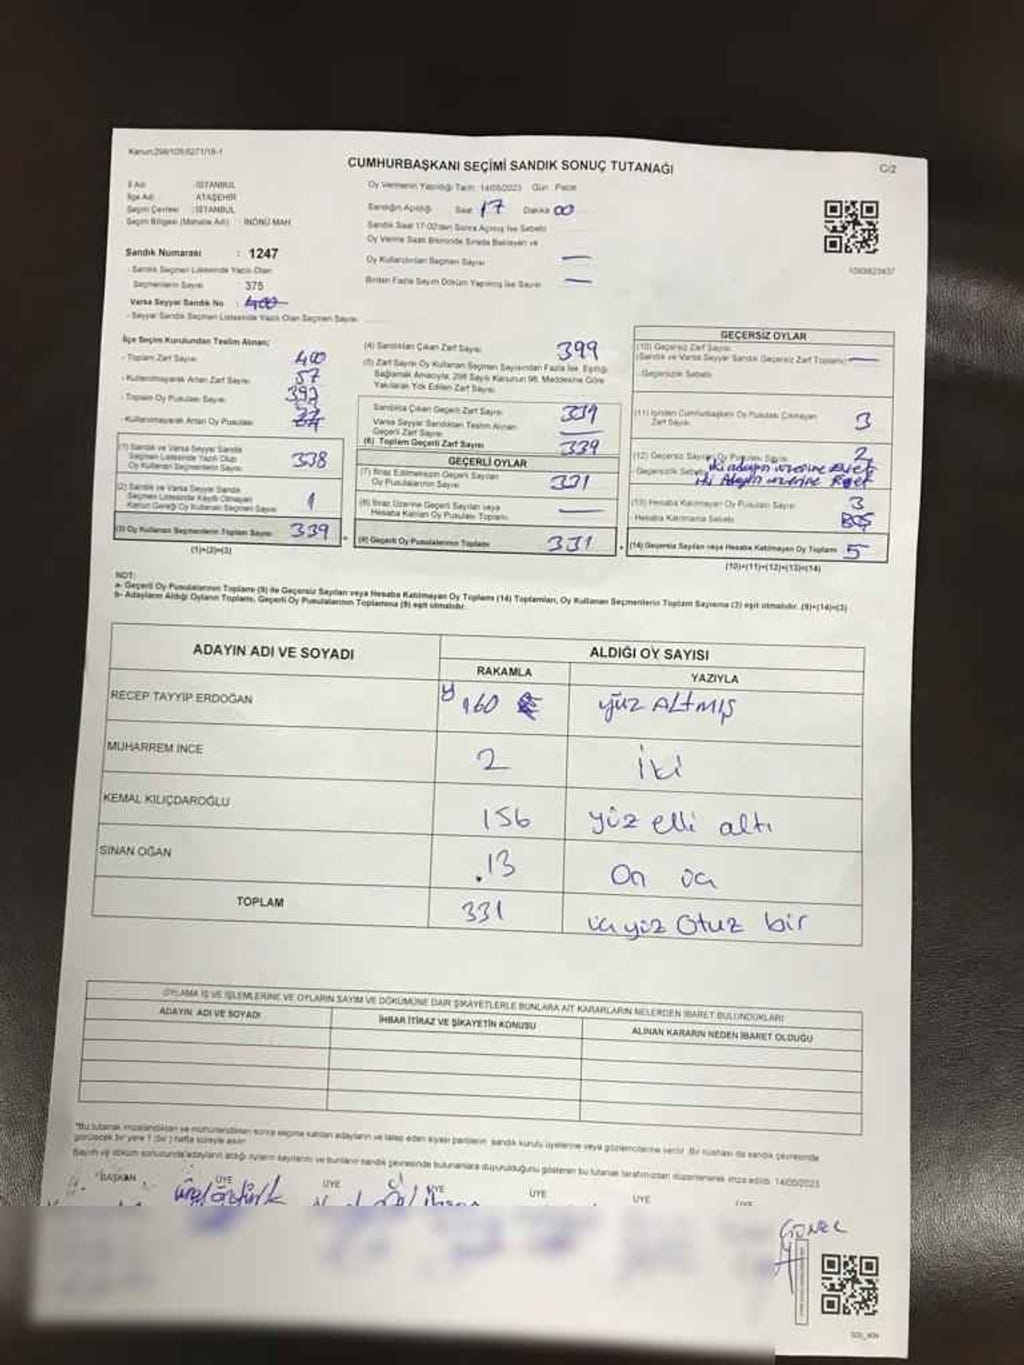 Kanun:298/105;6271/18-1
CUMHURBAŞKANI SEÇİMİ SANDIK SONUÇ TUTANAĞI
C/2
İl Adı : İSTANBUL
İlçe Adı : ATAŞEHİR
Seçim Çevresi : İSTANBUL
Seçim Bölgesi (Mahalle Adı) : İNÖNÜ MAH
Oy Vermenin Yapıldığı Tarih: 14/05/2023 Gün: Pazar
Sandığın Açıldığı Saat 17 Dakika 00
Sandık Saat 17:00'den Sonra Açılmış İse Sebebi
Oy Verme Saati Bitiminde Sırada Bekleyen ve
Oy Kullandırılan Seçmen Sayısı —
Birden Fazla Sayım Döküm Yapılmış İse Sayısı —
Sandık Numarası : 1247
- Sandık Seçmen Listesinde Yazılı Olan
Seçmenlerin Sayısı 375
Varsa Seyyar Sandık No : 400
- Seyyar Sandık Seçmen Listesinde Yazılı Olan Seçmen Sayısı
İlçe Seçim Kurulundan Teslim Alınan;
- Toplam Zarf Sayısı 400
- Kullanılmayarak Artan Zarf Sayısı 57
- Toplam Oy Pusulası Sayısı 392
- Kullanılmayarak Artan Oy Pusulası
(1) Sandık ve Varsa Seyyar Sandık
Seçmen Listesinde Yazılı Olup
Oy Kullanan Seçmenlerin Sayısı 338
(2) Sandık ve Varsa Seyyar Sandık
Seçmen Listesinde Kayıtlı Olmayan
Kanun Gereği Oy Kullanan Seçmen Sayısı 1
(3) Oy Kullanan Seçmenlerin Toplam Sayısı 339
(1)+(2)=(3)
(4) Sandıktan Çıkan Zarf Sayısı 399
(5) Zarf Sayısı Oy Kullanan Seçmen Sayısından Fazla İse, Eşitliği
Sağlamak Amacıyla; 298 Sayılı Kanunun 98. Maddesine Göre
Yakılarak Yok Edilen Zarf Sayısı
Sandıkta Çıkan Geçerli Zarf Sayısı 339
Varsa Seyyar Sandıktan Teslim Alınan
Geçerli Zarf Sayısı —
(6) Toplam Geçerli Zarf Sayısı 339
GEÇERLİ OYLAR
(7) İtiraz Edilmeksizin Geçerli Sayılan
Oy Pusulalarının Sayısı 331
(8) İtiraz Üzerine Geçerli Sayılan veya
Hesaba Katılan Oy Pusulası Toplamı —
(9) Geçerli Oy Pusulalarının Toplamı 331
GEÇERSİZ OYLAR
(10) Geçersiz Zarf Sayısı
(Sandık ve Varsa Seyyar Sandık Geçersiz Zarf Toplamı) —
- Geçersizlik Sebebi
(11) İçinden Cumhurbaşkanı Oy Pusulası Çıkmayan
Zarf Sayısı 3
(12) Geçersiz Sayılan Oy Pusulası Sayısı 2
- Geçersizlik Sebebi iki adayın üzerine Evet
iki Adayın üzerine
(13) Hesaba Katılmayan Oy Pusulası Sayısı 3
- Hesaba Katılmama Sebebi BOŞ
(14) Geçersiz Sayılan veya Hesaba Katılmayan Oy Toplamı 5
(10)+(11)+(12)+(13)=(14)
NOT:
a- Geçerli Oy Pusulalarının Toplamı (9) ile Geçersiz Sayılan veya Hesaba Katılmayan Oy Toplamı (14) Toplamları, Oy Kullanan Seçmenlerin Toplam Sayısına (3) eşit olmalıdır. (9)+(14)=(3)
b- Adayların Aldığı Oyların Toplamı, Geçerli Oy Pusulalarının Toplamına (9) eşit olmalıdır.
ADAYIN ADI VE SOYADI
ALDIĞI OY SAYISI
RAKAMLA YAZIYLA
RECEP TAYYİP ERDOĞAN 160 yüz ALtMIŞ
MUHARREM İNCE 2 iki
KEMAL KILIÇDAROĞLU 156 yüz elli altı
SİNAN OĞAN 13 On üç
TOPLAM 331 üçyüz Otuz bir
OYLAMA İŞ VE İŞLEMLERİNE VE OYLARIN SAYIM VE DÖKÜMÜNE DAİR ŞİKAYETLERLE BUNLARA AİT KARARLARIN NELERDEN İBARET BULUNDUKLARI
ADAYIN ADI VE SOYADI İHBAR İTİRAZ VE ŞİKAYETİN KONUSU ALINAN KARARIN NEDEN İBARET OLDUĞU
*Bu tutanak imzalandıktan ve mühürlendikten sonra seçime katılan adayların ve talep eden siyasi partilerin sandık kurulu üyelerine veya gözlemcilerine verilir. Bir nüshası da sandık çevresinde
görülecek bir yere 1 (bir) hafta süreyle asılır.
Sayım ve döküm sonucunda adayların aldığı oyların sayılarını ve bunların sandık çevresinde bulunanlara duyurulduğunu gösteren bu tutanak tarafımızdan düzenlenerek imza edildi. 14/05/2023
BAŞKAN ÜYE ÜYE ÜYE ÜYE ÜYE ÜYE